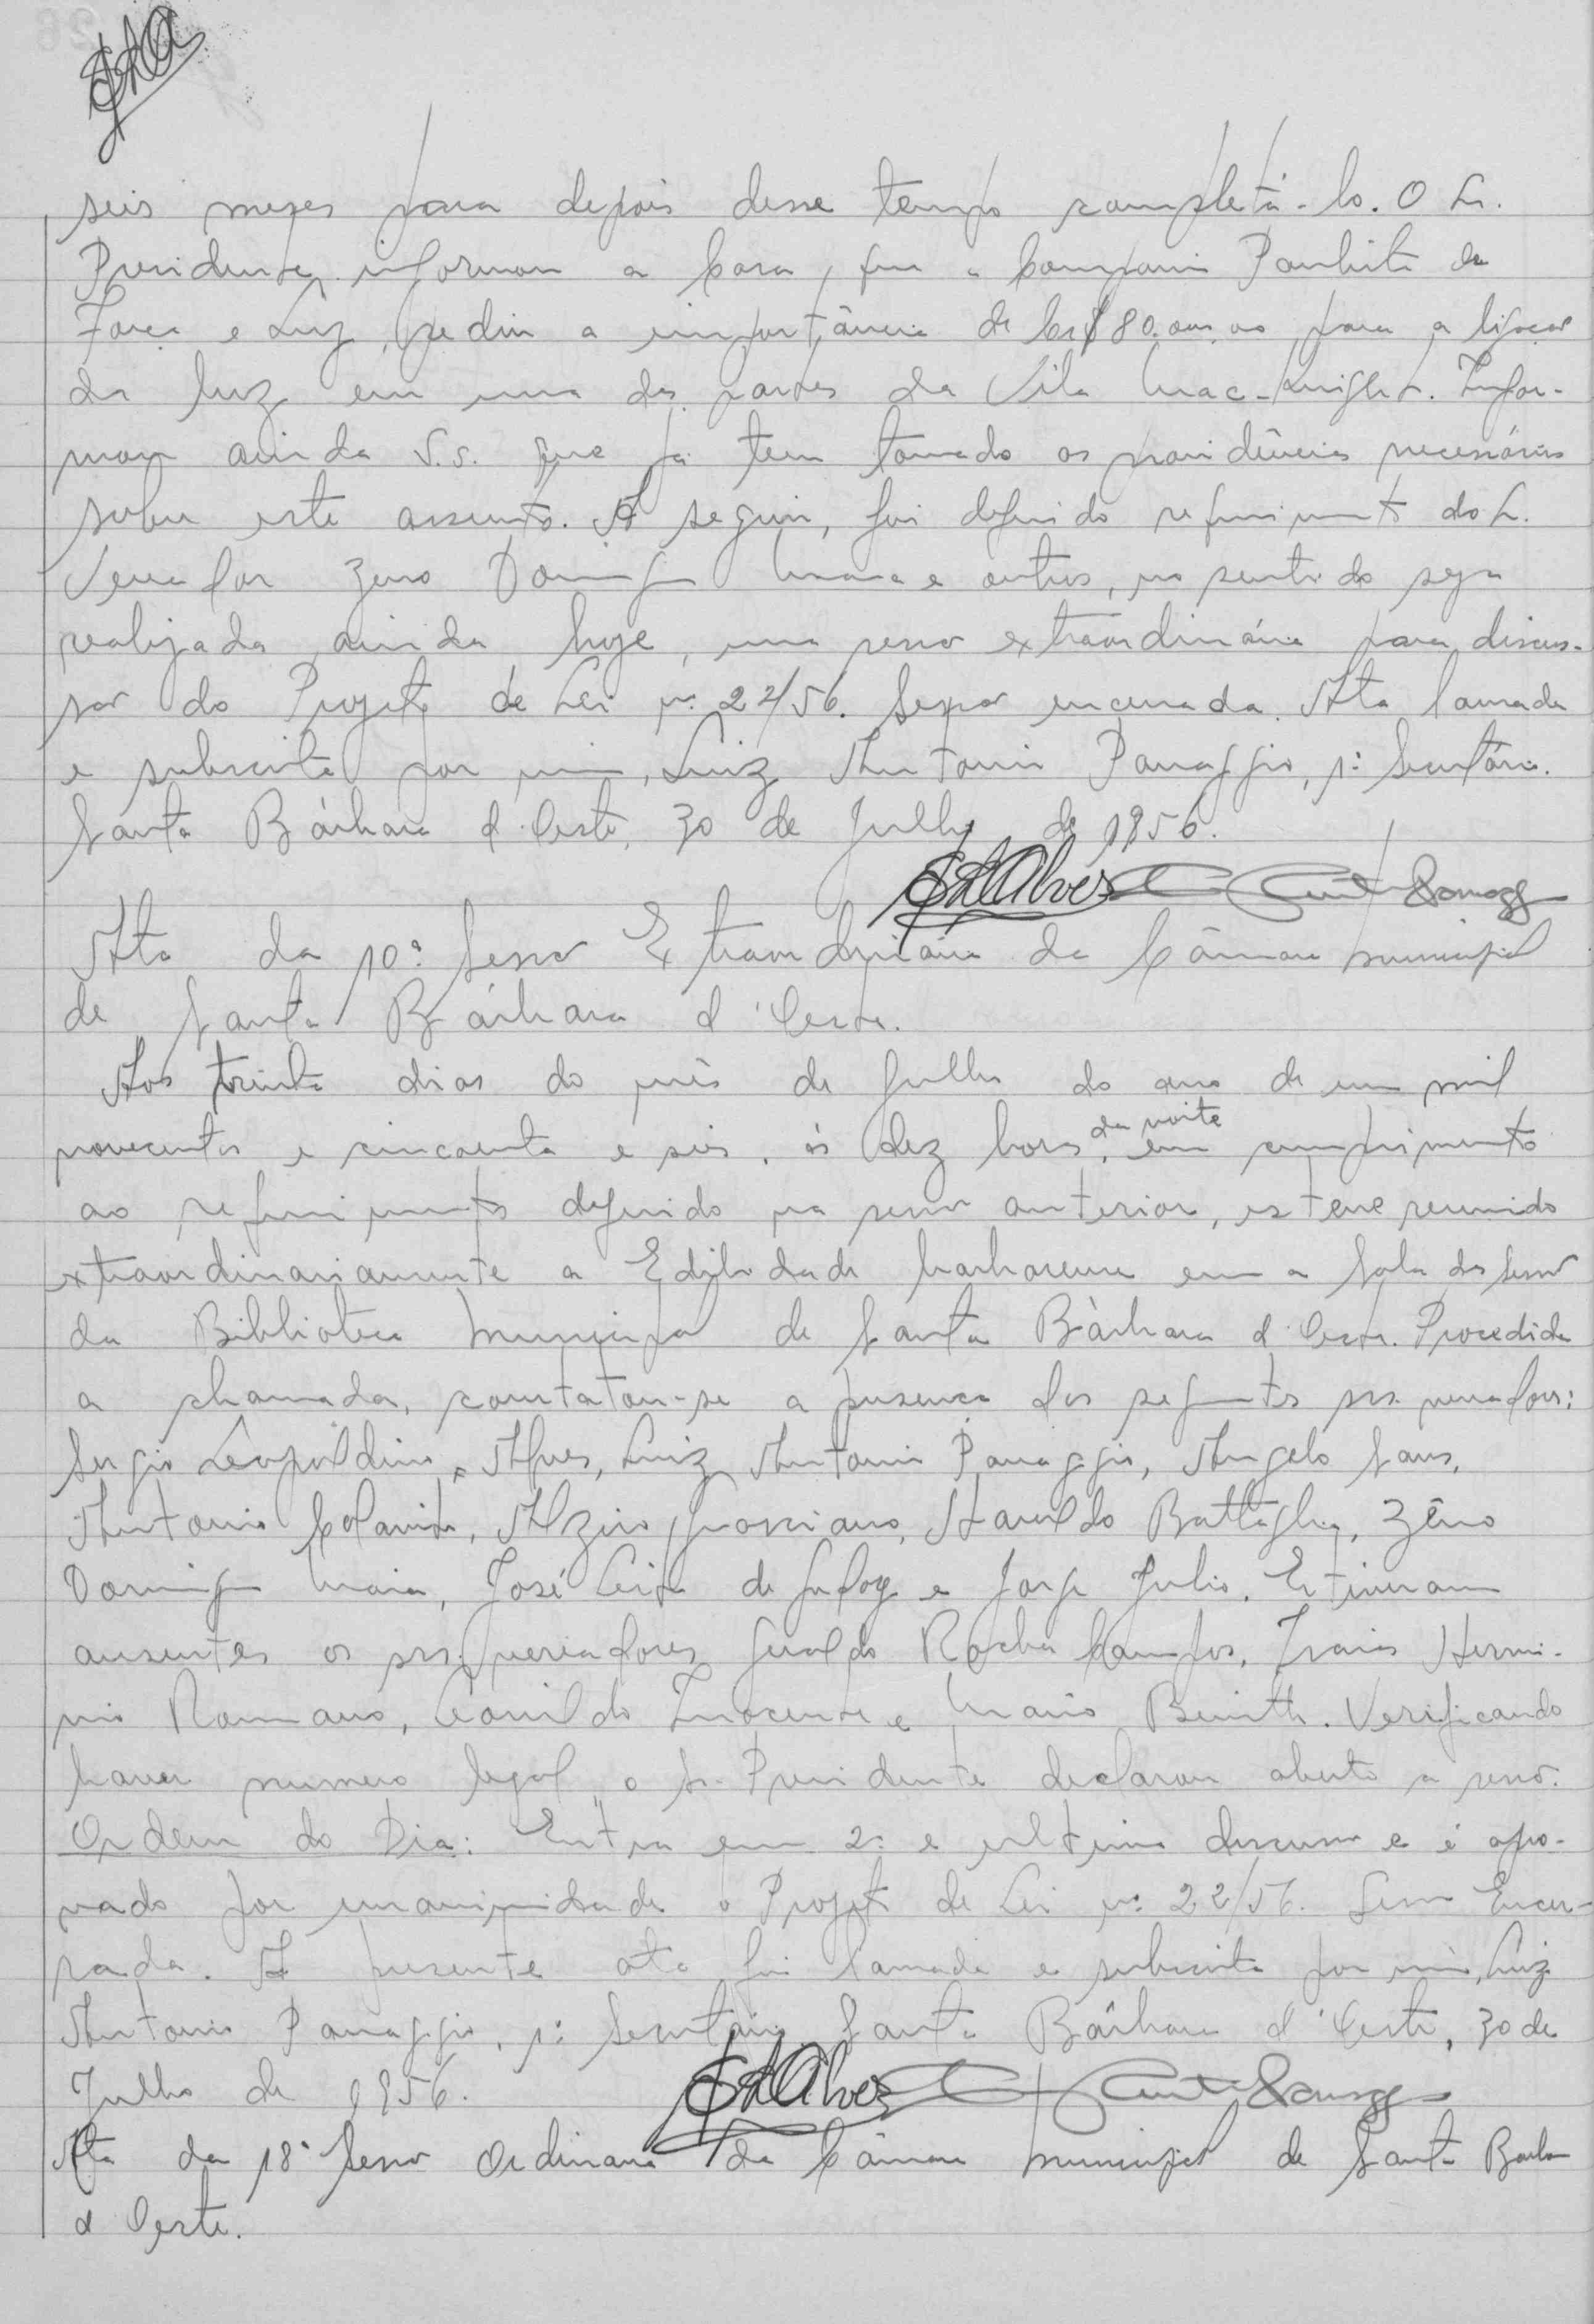 seis mezes para depois desse tempo completá-lo. O Sr.
Presidente informou a Casa, que a Companhia Paulista de
Força e Luz, pediu a importância de Cr$ 80.000,00 para a ligação
da luz em uma das partes da Vila Mac-Knight. Infor-
mou ainda S.S. que já tem tomado as providências necessárias
sobre este assunto. A seguir, foi deferido requerimento do Sr.
Vereador Zeno Domingos Maia e outros, no sentido seja
realizada ainda hoje, uma sessão extraordinária para discus-
são do Projeto de Lei nº 22/56. Sessão encerrada. Ata lavrada
e subscrita por mim, Luiz Antonio Panaggio, 1º Secretário.
Santa Bárbara d'Oeste, 30 de Julho de 1956.
SLAlves
Ata da 10ª Sessão Extraordinária da Câmara Municipal
de Santa Bárbara d'Oeste.
Aos trinta dias do mês de Julho do ano de um mil
novecentos e cincoenta e seis, às dez horas da noite, em cumprimento
ao requerimento deferido na sessão anterior, esteve reunida
extraordinariamente a Edilidade barbarense em a Sala das Sessões
da Biblioteca Municipal de Santa Bárbara d'Oeste. Procedida
a chamada, constatou-se a presença dos seguintes srs. vereadores:
Sergio Leopoldino Alves, Luiz Antonio Panaggio, Angelo Sans,
Antonio, Alziro, Haroldo Battaglia, Zêno
Domingos Maia, José Leite de Godoy e Jorge Julio. Estiveram
ausentes os srs. vereadores Geraldo Rocha Campos, Isaias Hermi-
nio Romano, Leonildo Inocente e Mario. Verificando
haver numero legal, o Sr. Presidente declarou aberta a sessão.
Ordem do Dia: Entra em 2ª e ultima discussão e é apro-
vado por unanimidade o Projeto de Lei nº 22/56. Sessão Encer-
rada. A presente ata foi lavrada e subscrita por mim, Luiz
Antonio Panaggio, 1º Secretário. Santa Bárbara d'Oeste, 30 de
Julho de 1956.
SLAlves
Ata da 18ª Sessão Ordinaria da Câmara Municipal de Santa Barbara
d'Oeste.